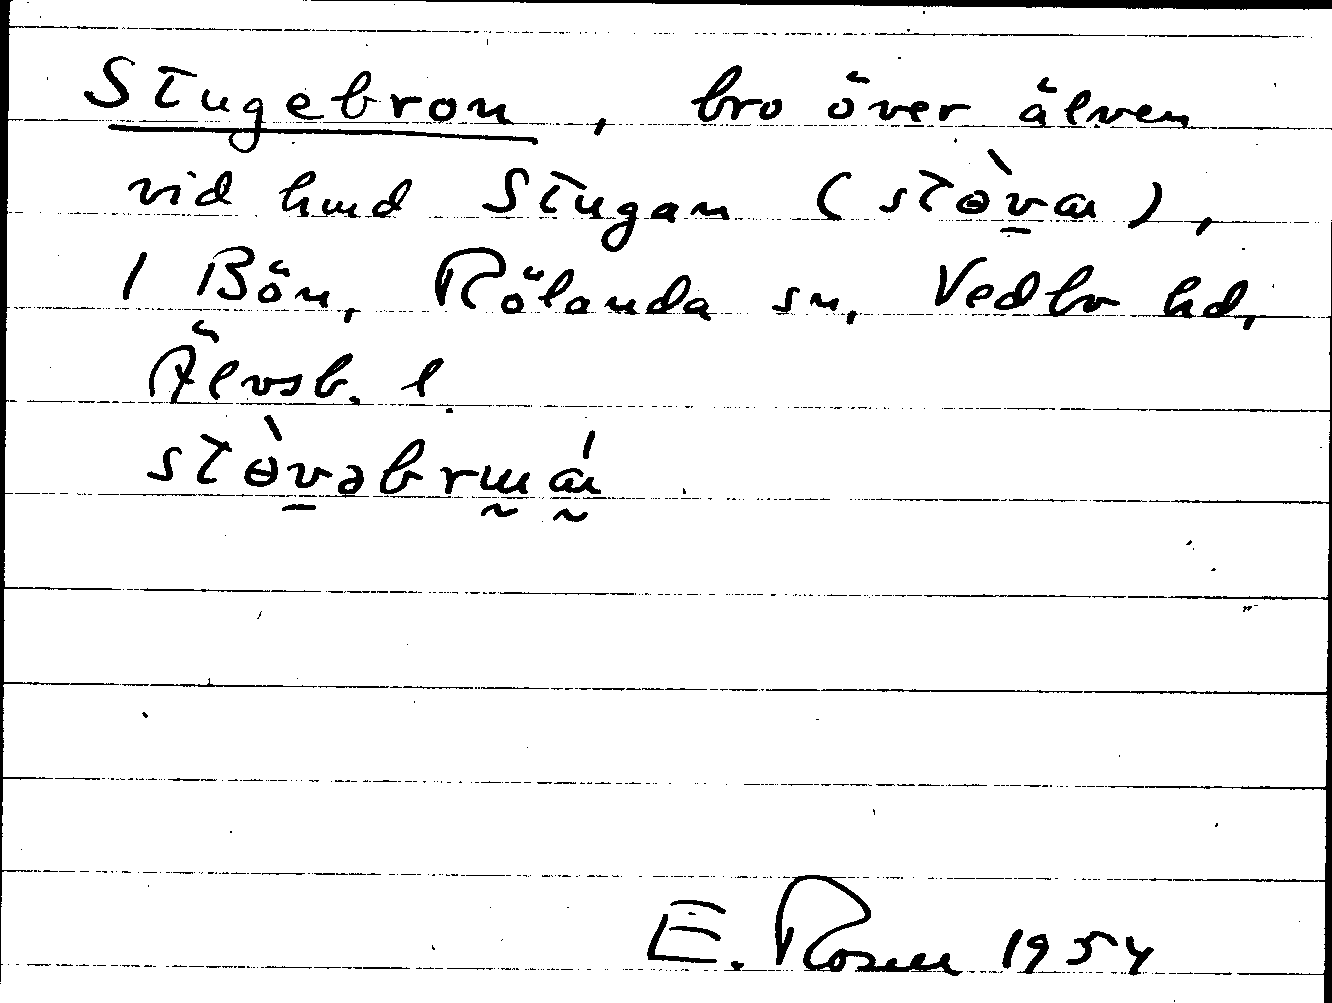 Stugebron, bro över älven
vid hmd Stugan (stɵ̀v̠a),
1 Bön, Rölanda sn, Vedbo hd,
Älvsb. l.
stɵ̀v̠əbrɯ̰á̰
E. Rosell 1954